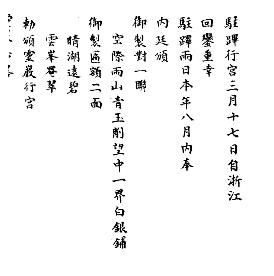 駐蹕行宮三月十七日自浙江
回鑾重幸
駐蹕兩日本年八月內奉
內廷頒
御製對一聯
空際兩山青玉削望中一界白銀鋪
御製匾額二面
晴湖遠碧
雲峯罨翠
勅頒靈巖行宮